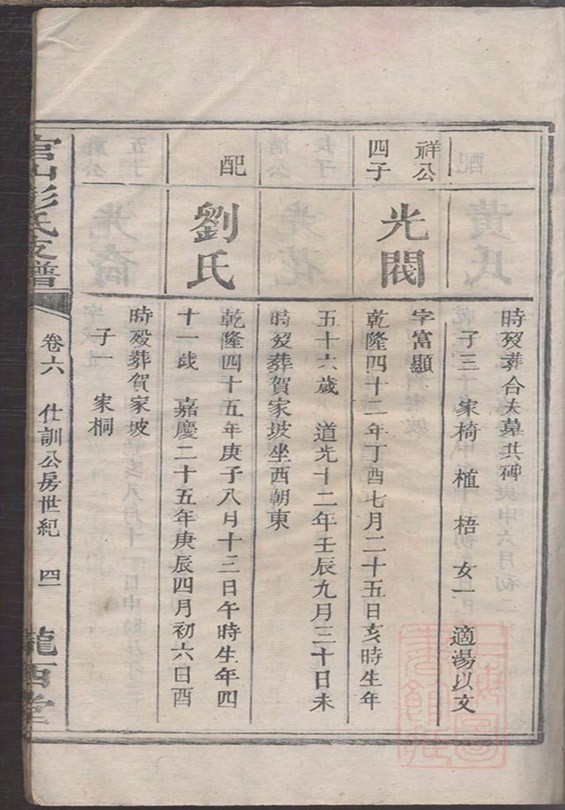 時歿葬合夫墓共碑
子三 家椅 植 梧 女一 適湯以文
祥公四子
光閥
字富顯
乾隆四十二年丁酉七月二十五日亥時生年
五十六歲 道光十二年壬辰九月三十日未
時歿葬賀家坡坐西朝東
配
劉氏
乾隆四十五年庚子八月十三日午時生年四
十一歲 嘉慶二十五年庚辰四月初六日酉
時歿葬賀家坡
子一 家桐
彭氏支譜
卷六 仕訓公房世紀 四一
隴西堂